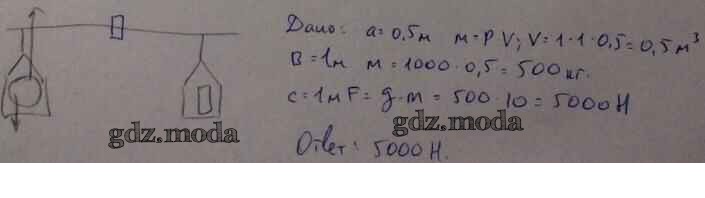 Дано: a = 0,5м m = ρ V; V = 1·1·0,5 = 0,5 м³
B = 1м m = 1000·0,5 = 500 кг.
c = 1м F = g·m = 500·10 = 5000 Н
gdz.moda
gdz.moda
Ответ: 5000 Н.